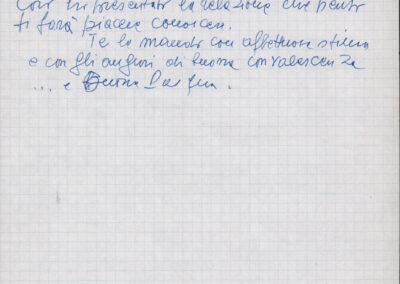 la relazione che penso
ti farà piacere conoscere.
Te la mando con affettuosa stima
e con gli auguri di buona convalescenza
... e Buona Pasqua.